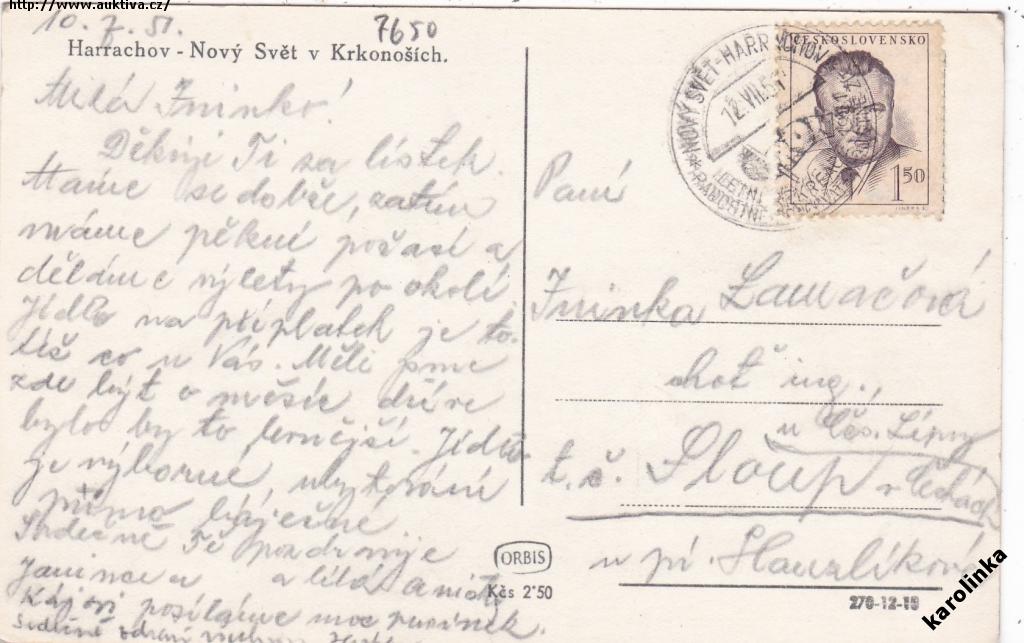 http://www.auktiva.cz/
10.7.51.
7650
Harrachov - Nový Svět v Krkonoších.
Milá Ininko!
Děkuji Ti za lístek.
Máme se dobře, zatím
máme pěkné počasí a
děláme výlety po okolí
Jídlo na příplatek je to-
též co u Vás. Měli jsme
zde být o měsíc dříve
bylo by to levnější. Jídlo
je výborné, ubytování
přímo báječné
Srdečně Tě pozdravuje
a
Kájovi posíláme moc pusinek.
Srdečně zdraví
NOVÝ SVĚT-HARRACHOV
12.VII.51
LETNÍ
ČESKOSLOVENSKO
1.50
Paní
Ininka Lamačová
choť ing.,
u Čes. Lípy
t. č. Sloup v Čechách
u pí. Hanzlíková
ORBIS
Kčs 2*50
270-12-10
karolinka